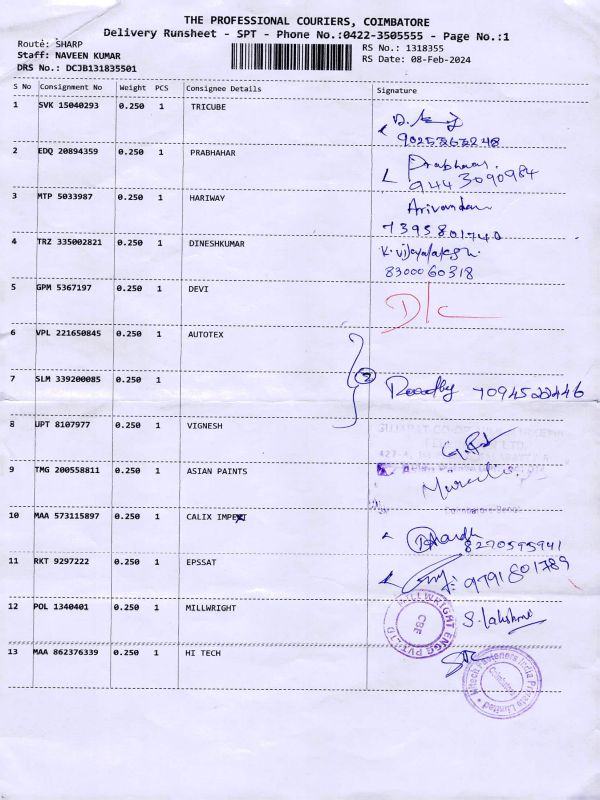 THE PROFESSIONAL COURIERS, COIMBATORE
Delivery Runsheet - SPT - Phone No.:0422-3505555 - Page No.:1
Route: SHARP
Staff: NAVEEN KUMAR
DRS No.: DCJB131835501
RS No.: 1318355
RS Date: 08-Feb-2024
S No Consignment No Weight PCS Consignee Details Signature
1 SVK 15040293 0.250 1 TRICUBE
2 EDQ 20894359 0.250 1 PRABHAHAR Prabhaar. 9443090984
3 MTP 5033987 0.250 1 HARIWAY Arivandan 7395801740
4 TRZ 335002821 0.250 1 DINESHKUMAR 8300060318
5 GPM 5367197 0.250 1 DEVI D/c
6 VPL 221650845 0.250 1 AUTOTEX
7 SLM 339200085 0.250 1 2 7094522446
8 UPT 8107977 0.250 1 VIGNESH
9 TMG 200558811 0.250 1 ASIAN PAINTS
10 MAA 573115897 0.250 1 CALIX 8270595941
11 RKT 9297222 0.250 1 EPSSAT 9791801789
12 POL 1340401 0.250 1 MILLWRIGHT MILLWRIGHT ENGG PVT LTD CBE S. Lakshmi
13 MAA 862376339 0.250 1 HI TECH Hitech Fasteners India Private Limited Coimbatore